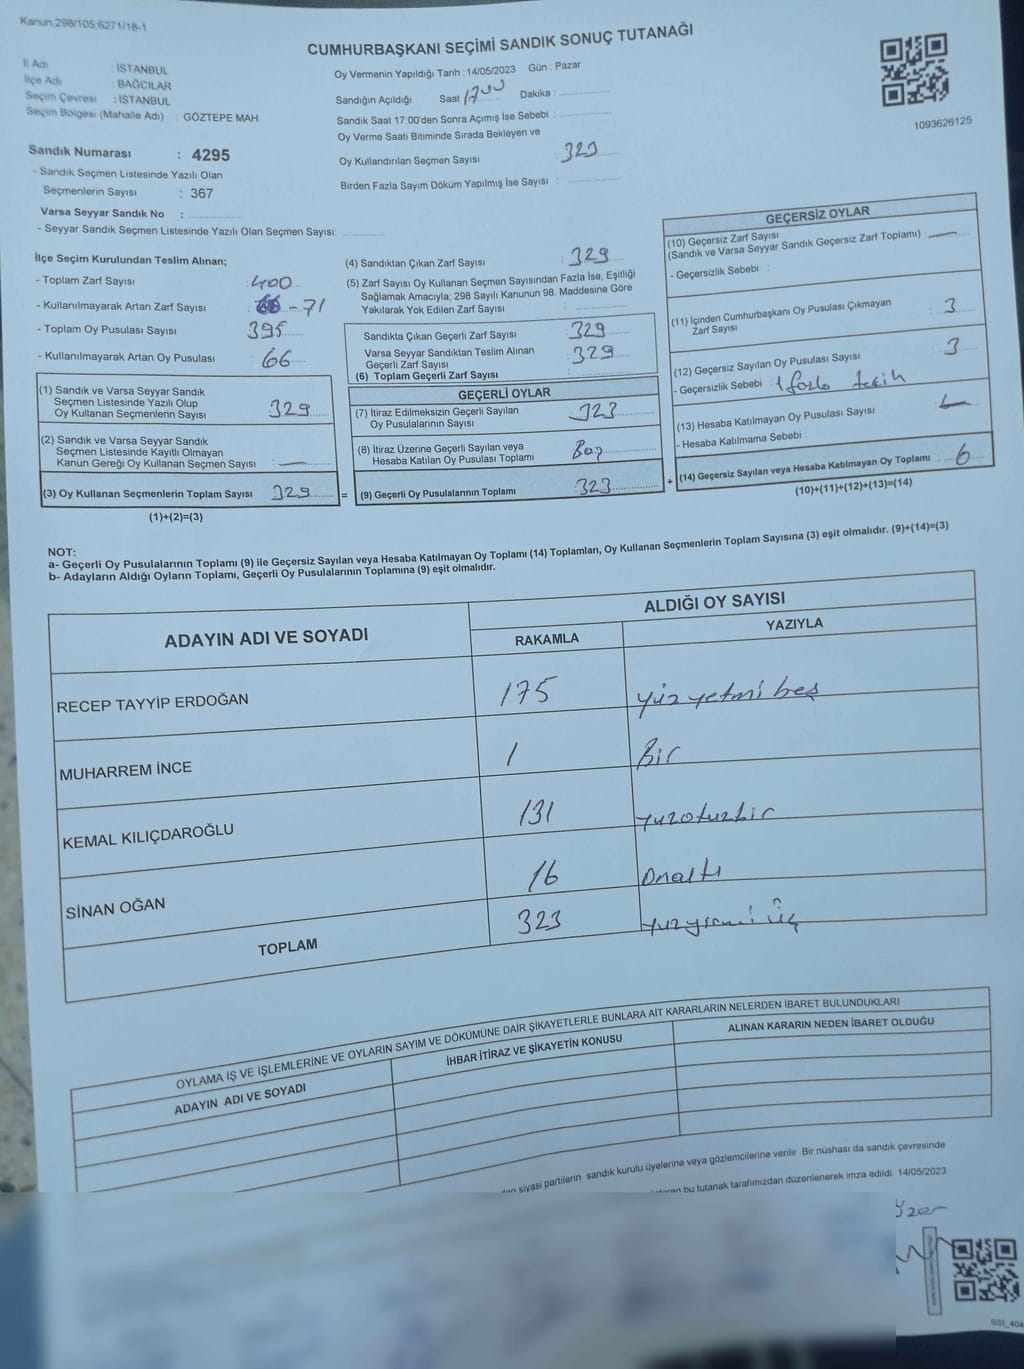 Kanun,298/105,6271/18-1
CUMHURBAŞKANI SEÇİMİ SANDIK SONUÇ TUTANAĞI
İl Adı : İSTANBUL
İlçe Adı : BAĞCILAR
Seçim Çevresi : İSTANBUL
Seçim Bölgesi (Mahalle Adı) : GÖZTEPE MAH.
Sandık Numarası : 4295
- Sandık Seçmen Listesinde Yazılı Olan
Seçmenlerin Sayısı : 367
Varsa Seyyar Sandık No :
- Seyyar Sandık Seçmen Listesinde Yazılı Olan Seçmen Sayısı:
Oy Vermenin Yapıldığı Tarih : 14/05/2023 Gün : Pazar
Sandığın Açıldığı Saat 17.00 Dakika :
Sandık Saat 17:00'den Sonra Açımış İse Sebebi :
Oy Verme Saati Bitiminde Sırada Bekleyen ve
Oy Kullandırılan Seçmen Sayısı : 329
Birden Fazla Sayım Döküm Yapılmış İse Sayısı :
1093626125
İlçe Seçim Kurulundan Teslim Alınan;
- Toplam Zarf Sayısı : 400
- Kullanılmayarak Artan Zarf Sayısı : 66 - 71
- Toplam Oy Pusulası Sayısı 395
- Kullanılmayarak Artan Oy Pusulası : 66
(1) Sandık ve Varsa Seyyar Sandık
Seçmen Listesinde Yazılı Olup
Oy Kullanan Seçmenlerin Sayısı : 329
(2) Sandık ve Varsa Seyyar Sandık
Seçmen Listesinde Kayıtlı Olmayan
Kanun Gereği Oy Kullanan Seçmen Sayısı : —
(3) Oy Kullanan Seçmenlerin Toplam Sayısı 329 =
(1)+(2)=(3)
(4) Sandıktan Çıkan Zarf Sayısı : 329
(5) Zarf Sayısı Oy Kullanan Seçmen Sayısından Fazla İse, Eşitliği
Sağlamak Amacıyla; 298 Sayılı Kanunun 98. Maddesine Göre
Yakılarak Yok Edilen Zarf Sayısı :
Sandıkta Çıkan Geçerli Zarf Sayısı : 329
Varsa Seyyar Sandıktan Teslim Alınan
Geçerli Zarf Sayısı : 329
(6) Toplam Geçerli Zarf Sayısı :
GEÇERLİ OYLAR
(7) İtiraz Edilmeksizin Geçerli Sayılan
Oy Pusulalarının Sayısı : 323
(8) İtiraz Üzerine Geçerli Sayılan veya
Hesaba Katılan Oy Pusulası Toplamı
(9) Geçerli Oy Pusulalarının Toplamı : 323 +
GEÇERSİZ OYLAR
(10) Geçersiz Zarf Sayısı
(Sandık ve Varsa Seyyar Sandık Geçersiz Zarf Toplamı) —
- Geçersizlik Sebebi :
(11) İçinden Cumhurbaşkanı Oy Pusulası Çıkmayan
Zarf Sayısı : 3
(12) Geçersiz Sayılan Oy Pusulası Sayısı : 3
- Geçersizlik Sebebi : 1 fazla
(13) Hesaba Katılmayan Oy Pusulası Sayısı
- Hesaba Katılmama Sebebi :
(14) Geçersiz Sayılan veya Hesaba Katılmayan Oy Toplamı : 6
(10)+(11)+(12)+(13)=(14)
NOT:
a- Geçerli Oy Pusulalarının Toplamı (9) ile Geçersiz Sayılan veya Hesaba Katılmayan Oy Toplamı (14) Toplamları, Oy Kullanan Seçmenlerin Toplam Sayısına (3) eşit olmalıdır. (9)+(14)=(3)
b- Adayların Aldığı Oyların Toplamı, Geçerli Oy Pusulalarının Toplamına (9) eşit olmalıdır.
ADAYIN ADI VE SOYADI
ALDIĞI OY SAYISI
RAKAMLA YAZIYLA
RECEP TAYYİP ERDOĞAN 175 yüzyetmi beş
MUHARREM İNCE 1 Bir
KEMAL KILIÇDAROĞLU 131 yuzotuzbir
SİNAN OĞAN 16 Onaltı
TOPLAM 323 yuzyirmi üç
OYLAMA İŞ VE İŞLEMLERİNE VE OYLARIN SAYIM VE DÖKÜMÜNE DAİR ŞİKAYETLERLE BUNLARA AİT KARARLARIN NELERDEN İBARET BULUNDUKLARI
ADAYIN ADI VE SOYADI İHBAR İTİRAZ VE ŞİKAYETİN KONUSU ALINAN KARARIN NEDEN İBARET OLDUĞU
siyasi partilerin sandık kurulu üyelerine veya gözlemcilerine verilir. Bir nüshası da sandık çevresinde
bu tutanak tarafımızdan düzenlenerek imza edildi. 14/05/2023